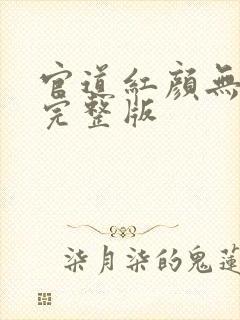 官道紅顏無
完整版
柒月柒的鬼蓮